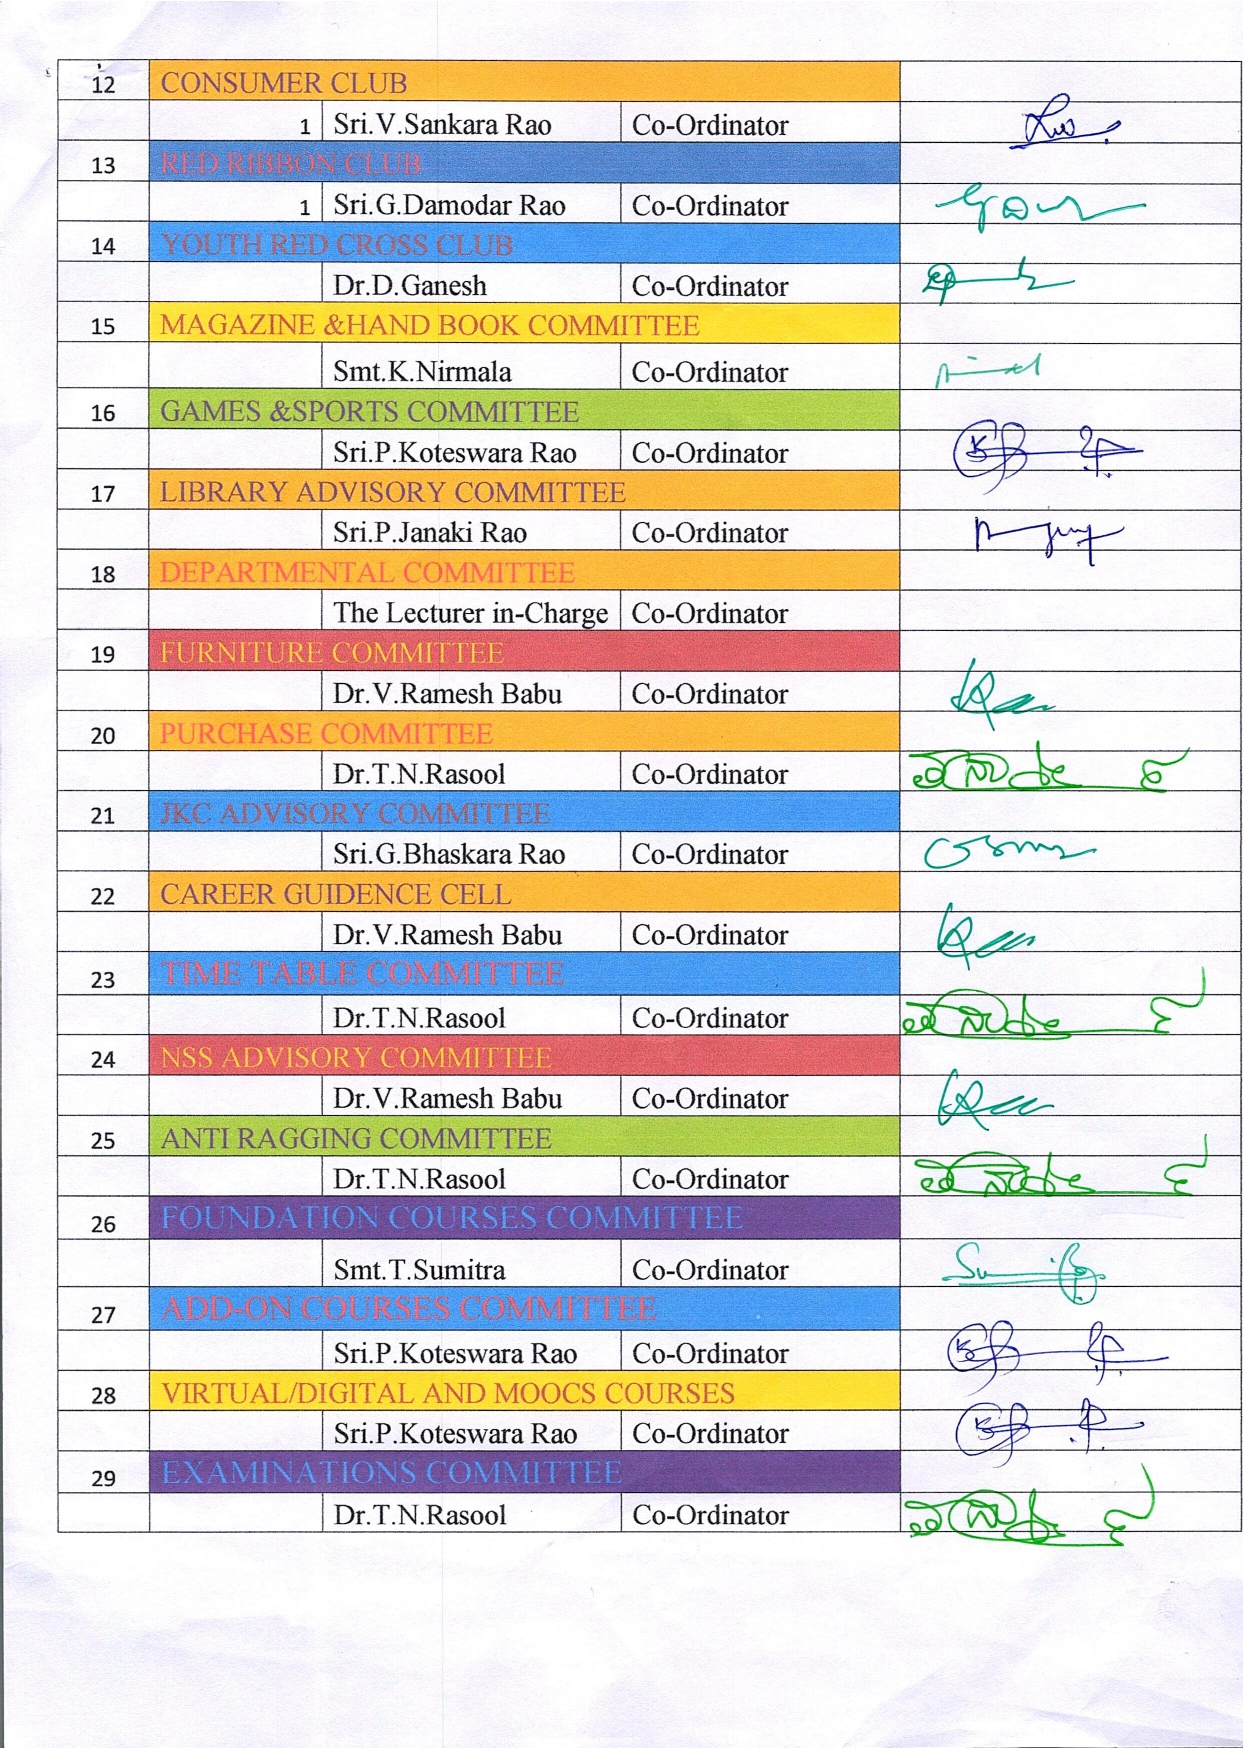 12 CONSUMER CLUB
1 Sri.V.Sankara Rao Co-Ordinator
13 RED RIBBON CLUB
1 Sri.G.Damodar Rao Co-Ordinator
14 YOUTH RED CROSS CLUB
Dr.D.Ganesh Co-Ordinator
15 MAGAZINE &HAND BOOK COMMITTEE
Smt.K.Nirmala Co-Ordinator
16 GAMES &SPORTS COMMITTEE
Sri.P.Koteswara Rao Co-Ordinator
17 LIBRARY ADVISORY COMMITTEE
Sri.P.Janaki Rao Co-Ordinator
18 DEPARTMENTAL COMMITTEE
The Lecturer in-Charge Co-Ordinator
19 FURNITURE COMMITTEE
Dr.V.Ramesh Babu Co-Ordinator
20 PURCHASE COMMITTEE
Dr.T.N.Rasool Co-Ordinator
21 JKC ADVISORY COMMITTEE
Sri.G.Bhaskara Rao Co-Ordinator
22 CAREER GUIDENCE CELL
Dr.V.Ramesh Babu Co-Ordinator
23 TIME TABLE COMMITTEE
Dr.T.N.Rasool Co-Ordinator
24 NSS ADVISORY COMMITTEE
Dr.V.Ramesh Babu Co-Ordinator
25 ANTI RAGGING COMMITTEE
Dr.T.N.Rasool Co-Ordinator
26 FOUNDATION COURSES COMMITTEE
Smt.T.Sumitra Co-Ordinator
27 ADD-ON COURSES COMMITTEE
Sri.P.Koteswara Rao Co-Ordinator
28 VIRTUAL/DIGITAL AND MOOCS COURSES
Sri.P.Koteswara Rao Co-Ordinator
29 EXAMINATIONS COMMITTEE
Dr.T.N.Rasool Co-Ordinator